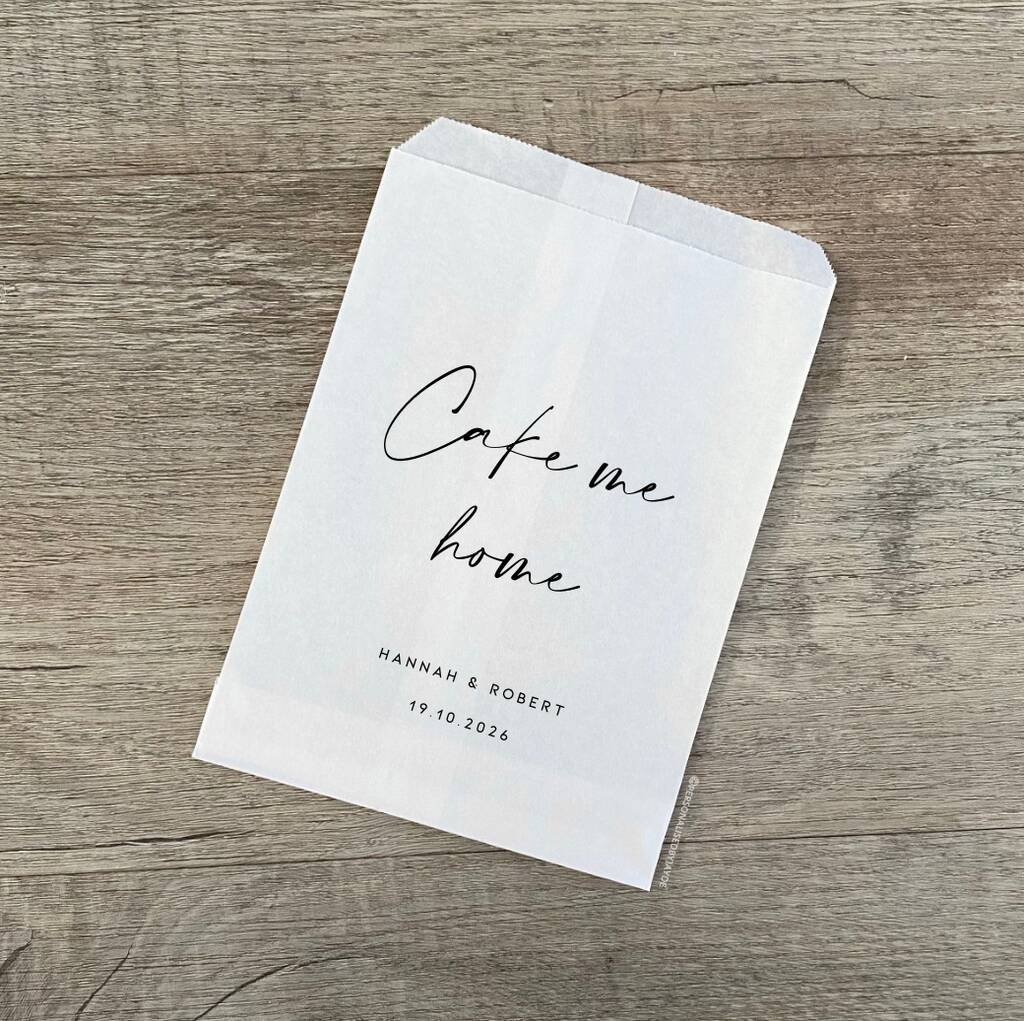 Cake me
home
HANNAH & ROBERT
19.10.2026
@PERSONALISEDBYJAYDE